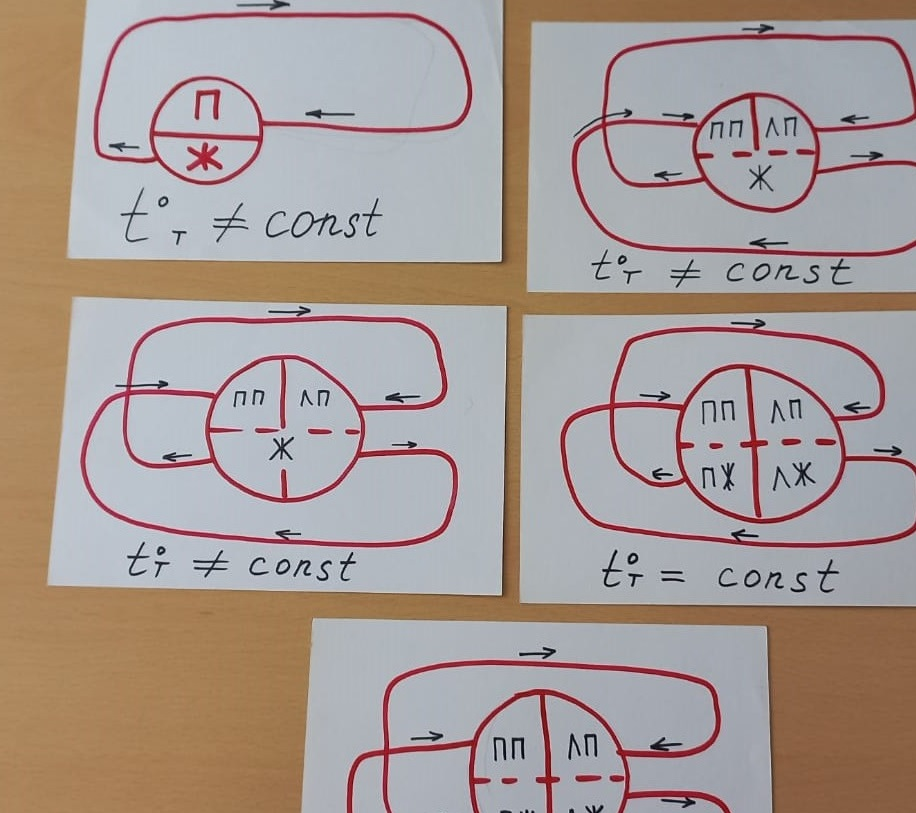 П
Ж
t°т ≠ const
ПП ЛП
Ж
t°т ≠ const
ПП ЛП
Ж
t°т ≠ const
ПП ЛП
ПЖ ЛЖ
t°т = const
ПП ЛП